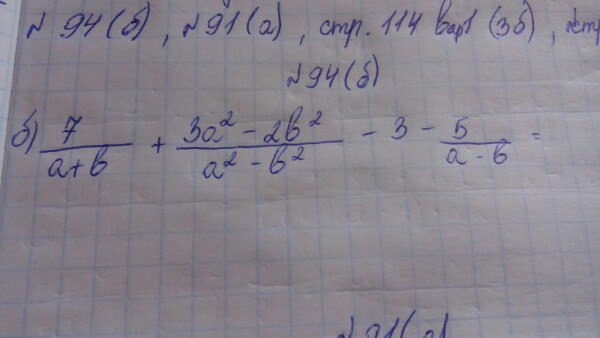 № 94 (б), № 91 (а), стр. 114 вар1 (3б), стр
№ 94 (б)
б) 7/(a+b) + (3a² - 2b²)/(a² - b²) - 3 - 5/(a - b) =
№ 91 (а)